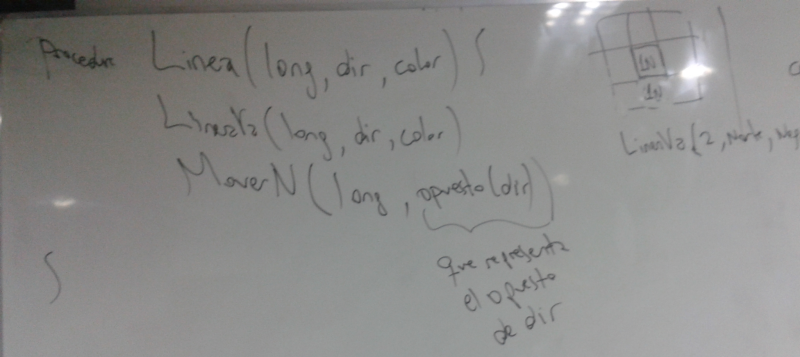 Procedure Linea(long, dir, color) {
LineaVa(long, dir, color)
MoverN(long, opuesto(dir))
}
que representa
el opuesto
de dir
1N
1N
LineaVa(2, Norte, Neg